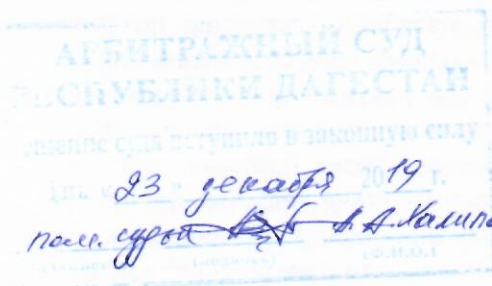 АРБИТРАЖНЫЙ СУД
РЕСПУБЛИКИ ДАГЕСТАН
решение суда вступило в законную силу
« 23 » декабря 2019 г.
пом. судьи А.А.
(подпись) (Ф.И.О.)